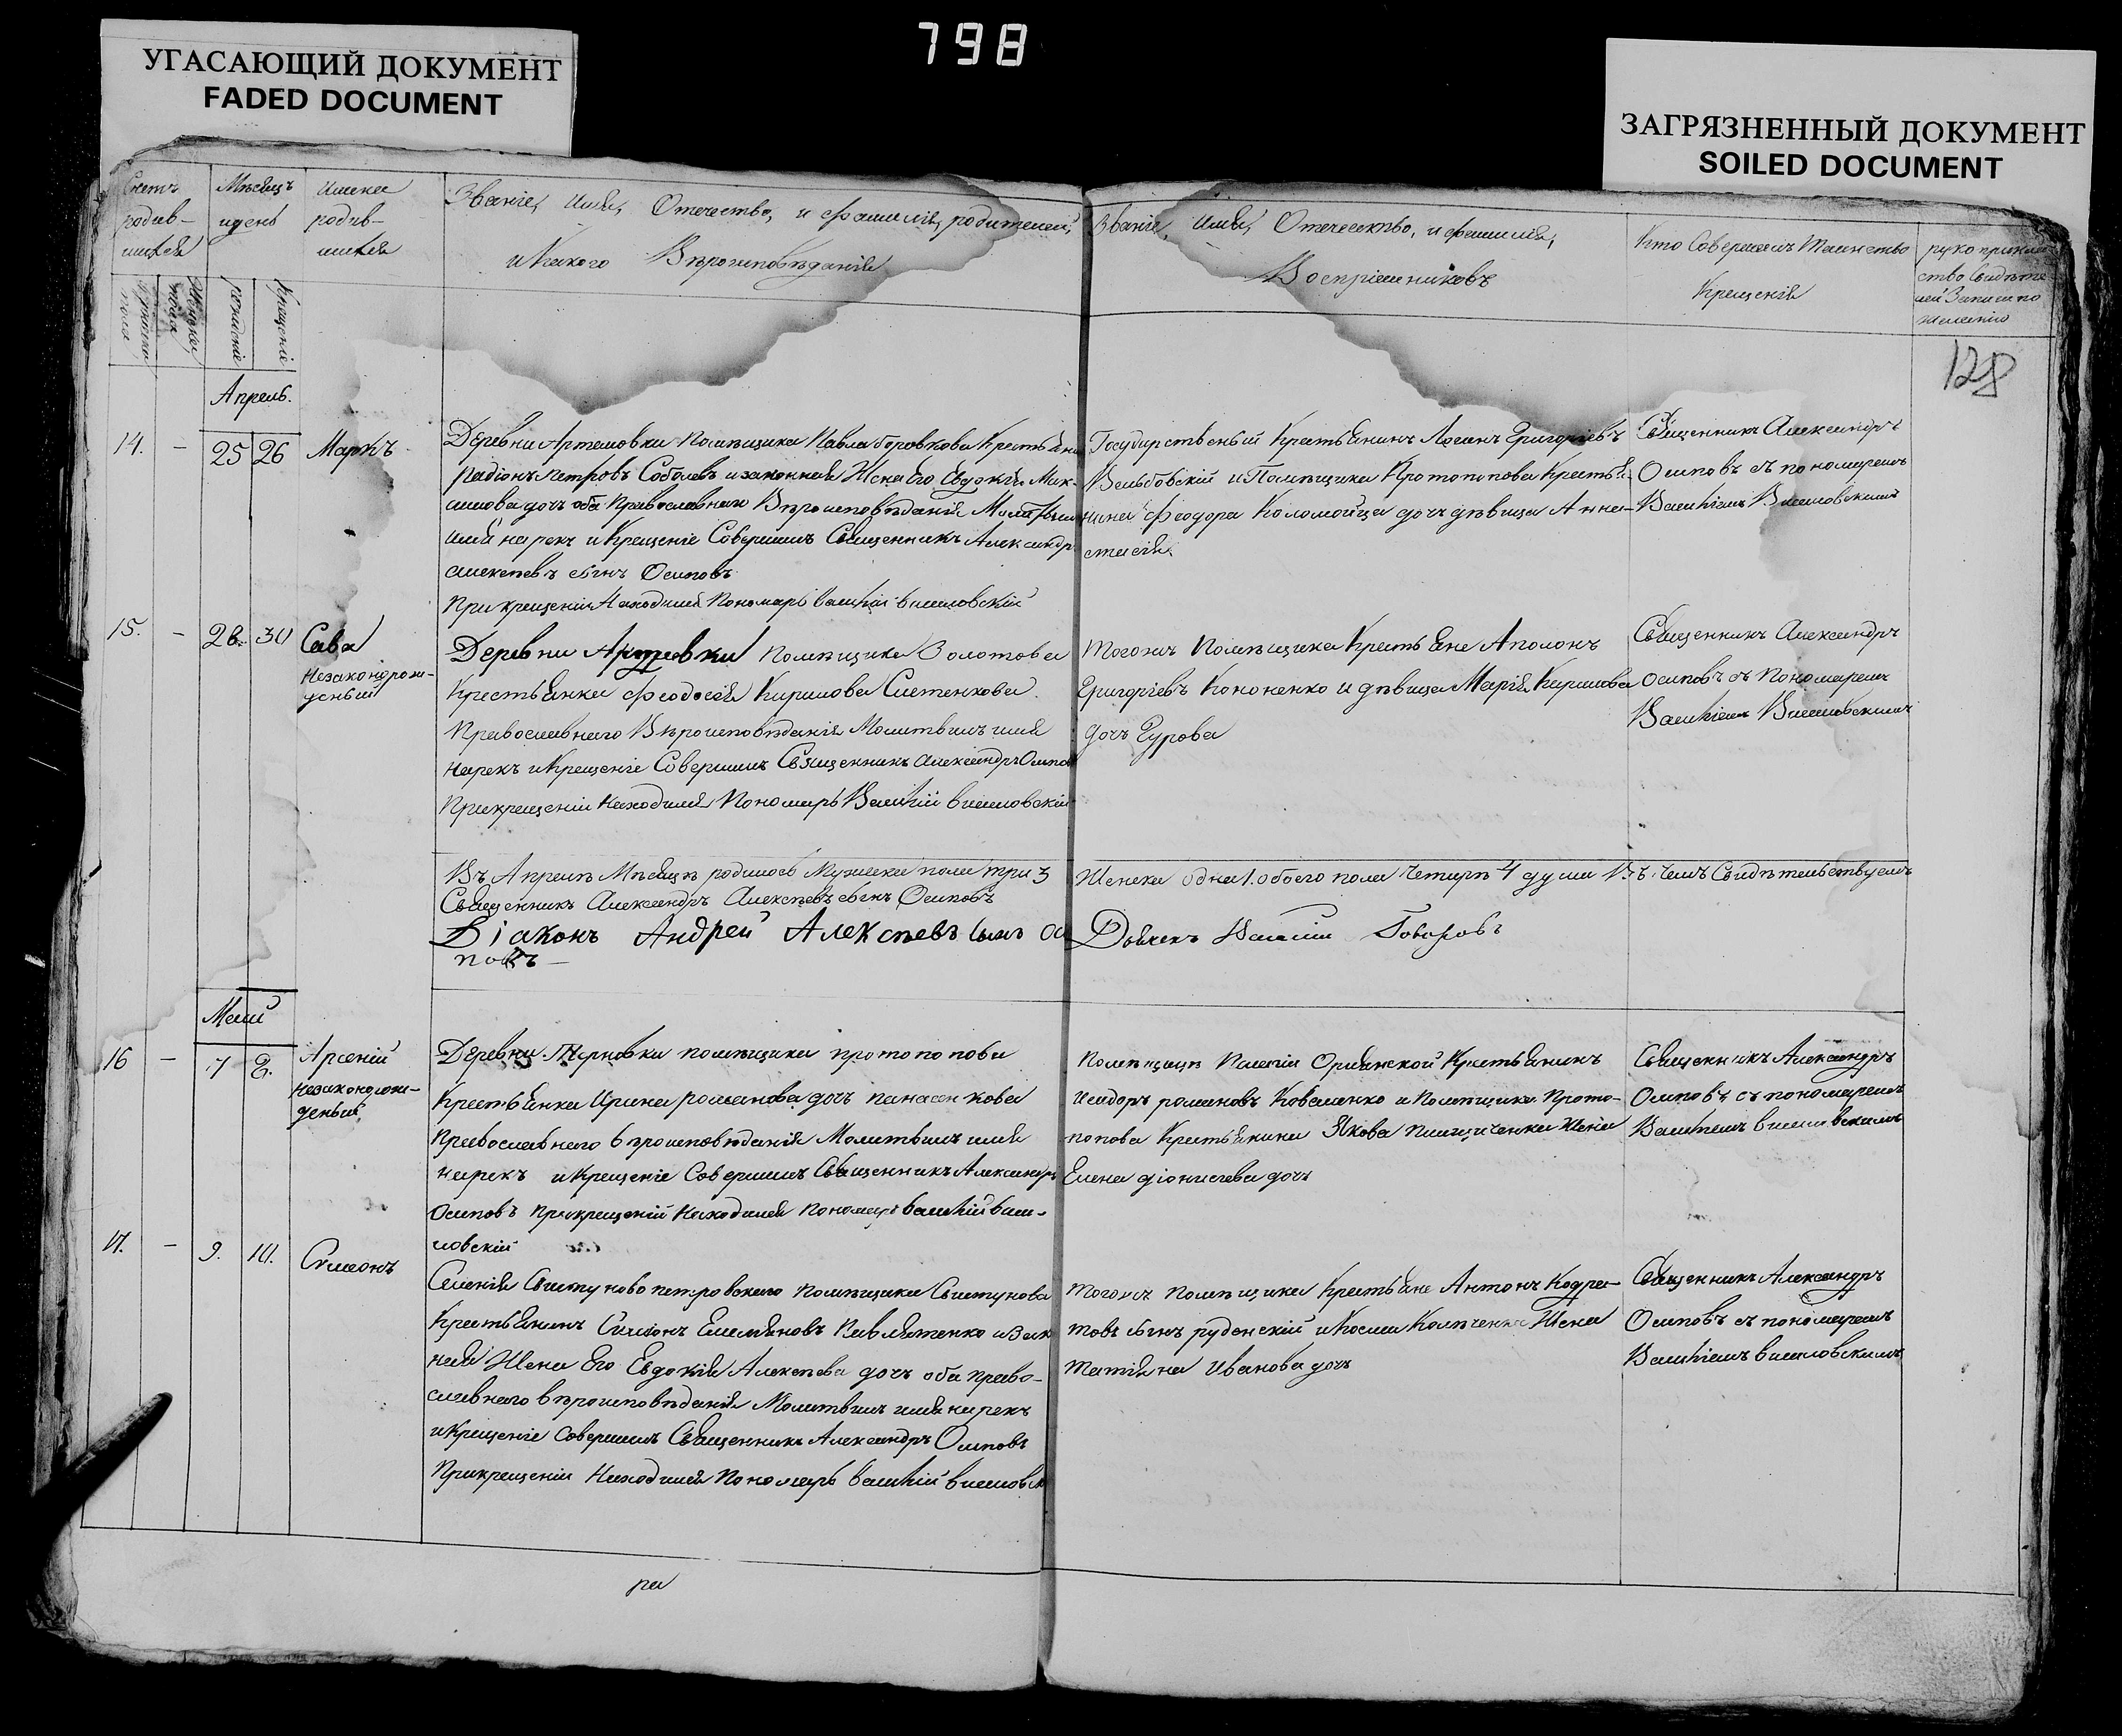 798
УГАСАЮЩИЙ ДОКУМЕНТ
FADED DOCUMENT
ЗАГРЯЗНЕННЫЙ ДОКУМЕНТ
SOILED DOCUMENT
Счетъ родив-шихся
Мѣсяцъ и день
имена родив-шихся
Званіе, Имя, Отечество, и фамилія, родителей,
и Какого Вѣроисповѣданія
Званіе, Имя, Отечество, и фамилія,
Воспріемниковъ
Кто Совершалъ Таинство
Крещенія
руко приклад
ство Свидѣте
лей Записи по
желанію
мужеска пола
женска пола
рожденіе
Крещеніе
128
Апрель.
14. - 25 26 Маркъ
Деревни Артемовки Помѣщика Павла Боровкова Крестьянинъ
Радіонъ Петровъ Соболевъ и законная Жена Его Евдокія Мак-
симова дочь оба Православнаго Вѣроисповѣданія Молитвилъ
имя нарекъ и Крещеніе Совершилъ Священникъ Александръ
Алексѣевъ сынъ Осиповъ
При крещеніи Находился Пономарь Василій
Государственый Крестьянинъ Логинъ Григорьевъ
и Помѣщика Протопопова Крестья-
нина Феодора Коломойца дочь дѣвица Анна-
стасія
Священникъ Александръ
Осиповъ съ пономаремъ
Василіемъ
15. - 28. 30 Сава
Незаконорож-
деный
Деревни Помѣщика Золотова
Крестьянка Феодосія Киримова
Православнаго Вѣроисповѣданія Молитвилъ имя
Нарекъ и Крещеніе Совершилъ Священникъ Александръ Осиповъ
При крещеніи Находился Пономарь Василій
Тогожъ Помѣщика Крестьяне Аполонъ
Григоріевъ Кононенко и дѣвица Марія Киримова
дочь Гурова
Священникъ Александръ
Осиповъ съ Пономаремъ
Василіемъ
Въ Апрелѣ Мѣсяцѣ родилось Мужеска пола три 3
Женска одна 1. обоего пола Четырѣ 4 души Въ чемъ Свидѣтельствуемъ
Священникъ Александръ Алексѣевъ сынъ Осиповъ
Діаконъ Андрей Алексѣевъ сынъ Оси
повъ
Дьячекъ Василій Говоровъ
Май
16 - 7 8. Арсеній
Незаконорож-
деный
Деревни Терновки помѣщика протопопова
Крестьянка Ирина романова дочь панасенкова
Православнаго вѣроисповѣданія Молитвилъ имя
нарекъ и Крещеніе Совершилъ Священникъ Александръ
Осиповъ При крещеніи Находился Пономарь василій
ловскій
Помѣщицы Крестьянинъ
Исидоръ романовъ Коваленко и Помѣщика Прото-
попова Крестьянина Якова жена
Елена діонисіева дочь
Священникъ Александръ
Осиповъ съ пономаремъ
Василіемъ
17. - 9. 10. Симеонъ
Селенія Свистуново петровскаго помѣщика Свистунова
Крестьянинъ Симеонъ Емельяновъ Павлятенко и Зако
ная Жена Его Евдокія Алексѣева дочь оба право-
славнаго вѣроисповѣданія Молитвилъ имя нарекъ
и Крещеніе Совершилъ Священникъ Александръ Осиповъ
При крещеніи Находился Пономарь василій
Тогожъ помѣщика Крестьяне Антонъ Кодра-
товъ сынъ руденскій и Космы Жена
Татіяна Иванова дочь
Священникъ Александръ
Осиповъ съ пономаремъ
Василіемъ
ра